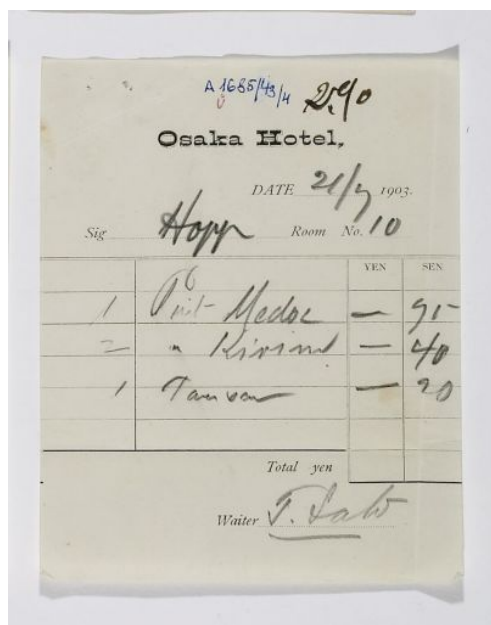 A 1685/43/4 2.90
Osaka Hotel,
DATE 21/7 1903.
Sig Hopp Room No. 10
YEN SEN
1 Pint Medoc — 95
2 " — 40
1 Tansan — 20
Total yen
Waiter T. Sato